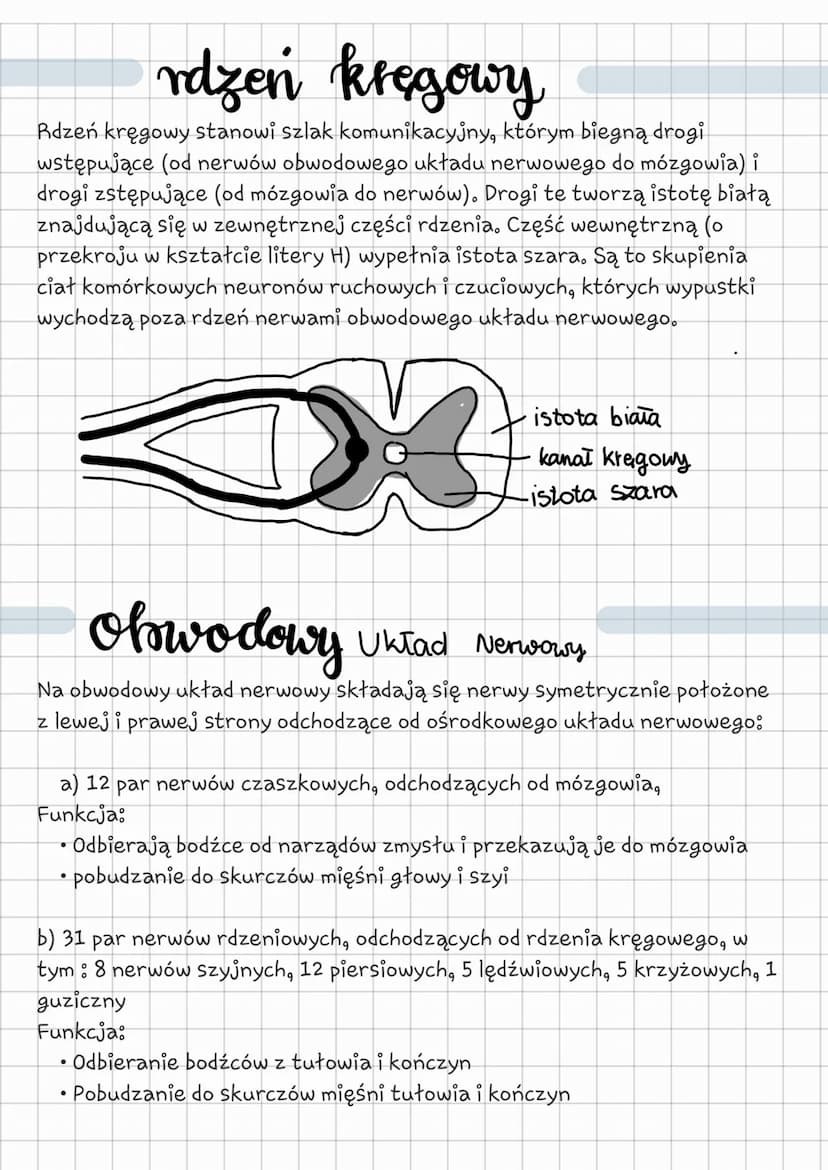 rdzeń kręgowy
Rdzeń kręgowy stanowi szlak komunikacyjny, którym biegną drogi
wstępujące (od nerwów obwodowego układu nerwowego do mózgowia) i
drogi zstępujące (od mózgowia do nerwów). Drogi te tworzą istotę białą
znajdującą się w zewnętrznej części rdzenia. Część wewnętrzną (o
przekroju w kształcie litery H) wypełnia istota szara. Są to skupienia
ciał komórkowych neuronów ruchowych i czuciowych, których wypustki
wychodzą poza rdzeń nerwami obwodowego układu nerwowego.
istota biała
kanał kręgowy
istota szara
Obwodowy Układ Nerwowy
Na obwodowy układ nerwowy składają się nerwy symetrycznie położone
z lewej i prawej strony odchodzące od ośrodkowego układu nerwowego:
a) 12 par nerwów czaszkowych, odchodzących od mózgowia,
Funkcja:
• Odbierają bodźce od narządów zmysłu i przekazują je do mózgowia
• pobudzanie do skurczów mięśni głowy i szyi
b) 31 par nerwów rdzeniowych, odchodzących od rdzenia kręgowego, w
tym : 8 nerwów szyjnych, 12 piersiowych, 5 lędźwiowych, 5 krzyżowych, 1
guziczny
Funkcja:
• Odbieranie bodźców z tułowia i kończyn
• Pobudzanie do skurczów mięśni tułowia i kończyn